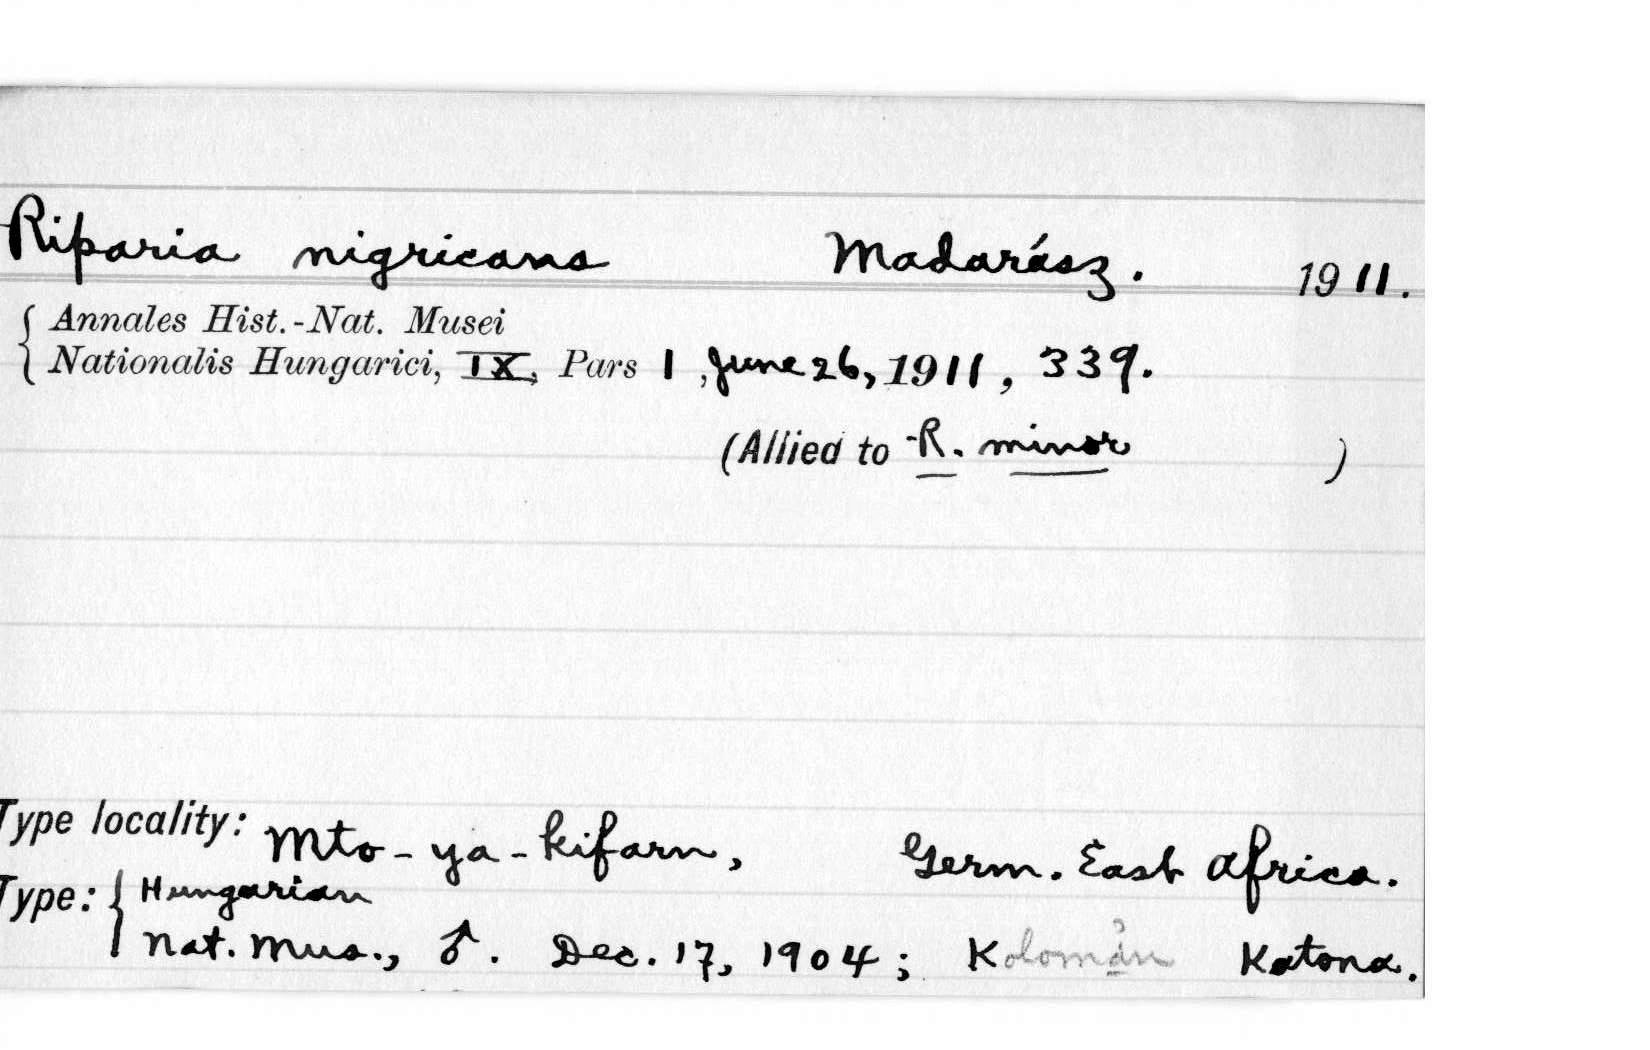 Riparia nigricans Madarász. 1911.
Annales Hist.-Nat. Musei
Nationalis Hungarici, IX, Pars 1, June 26, 1911, 339.
(Allied to R. minor )
Type locality: Mto-ya-kifaru, Germ. East Africa.
Type: Hungarian
Nat. Mus., ♂. Dec. 17, 1904; Kolomán Katona.